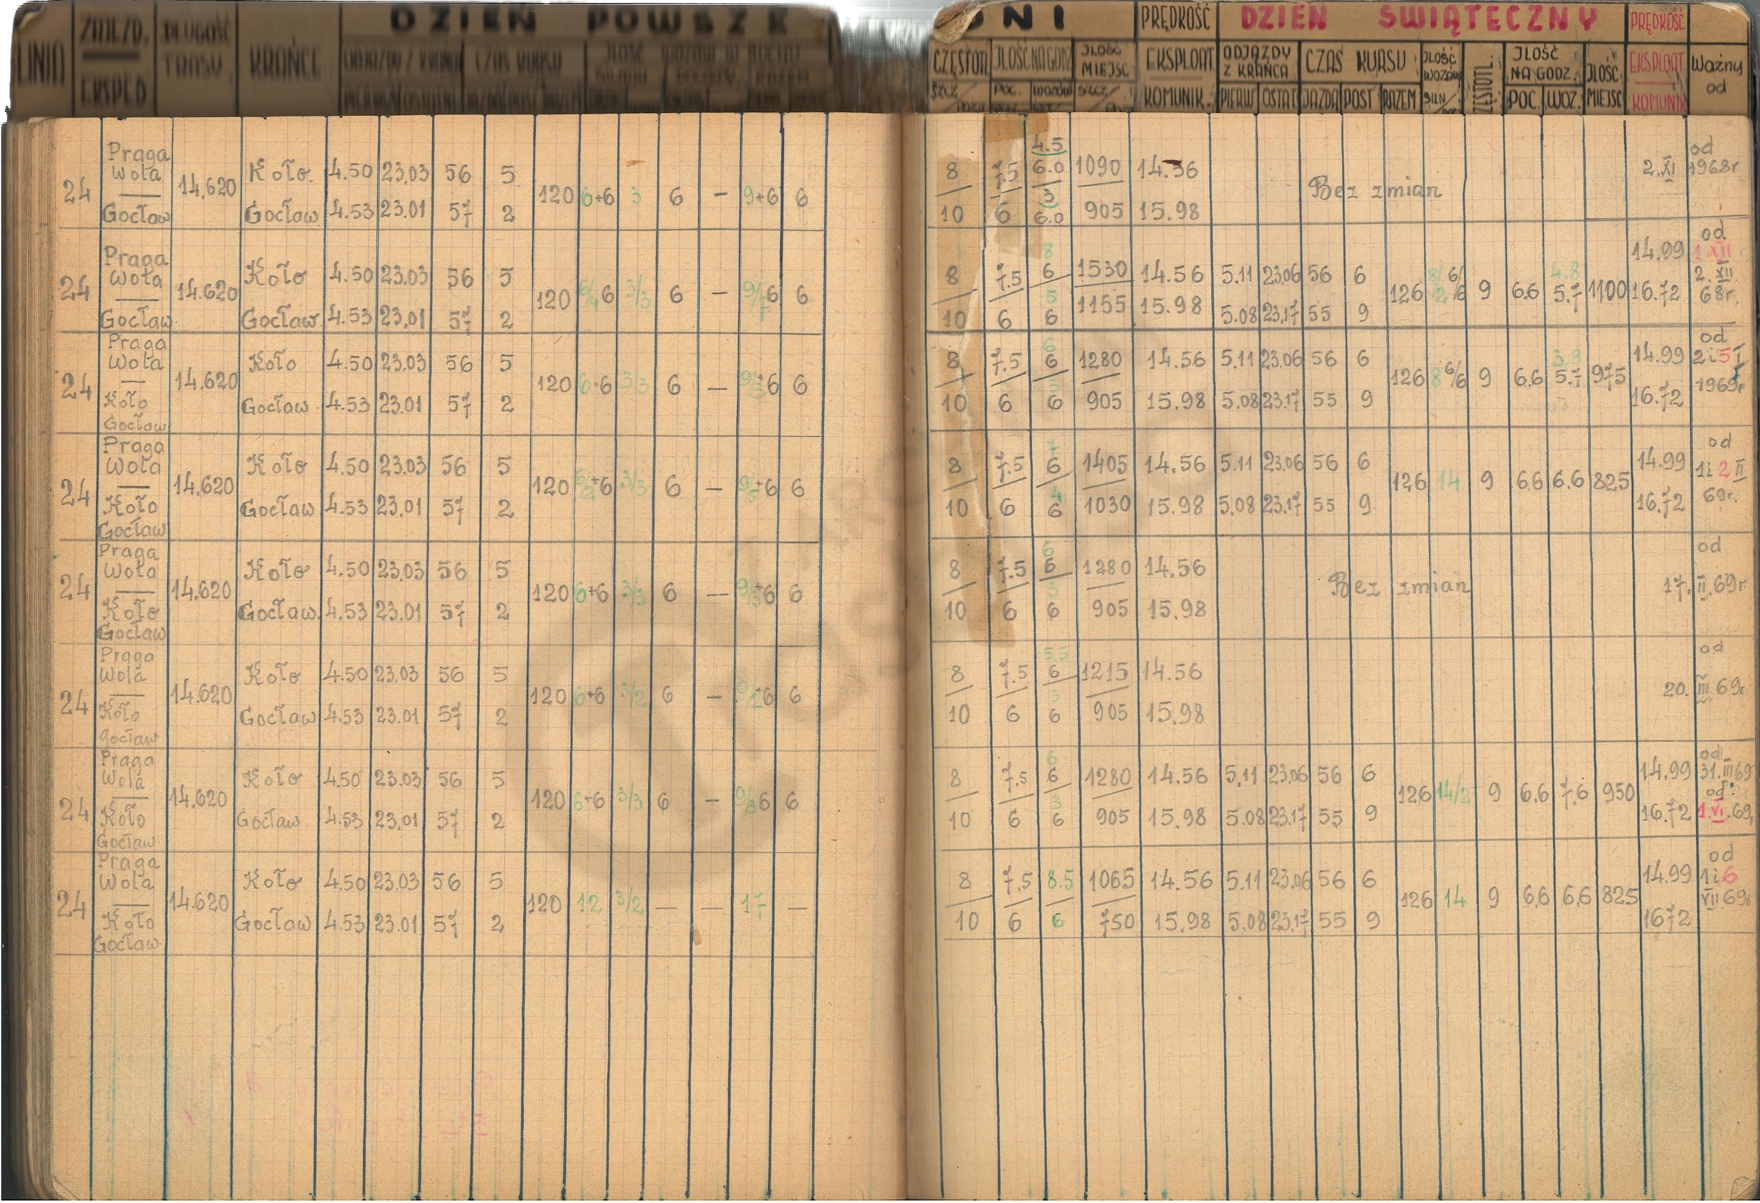 LINIA ZAJEZD. EKSPED. DŁUGOŚĆ TRASY KRAŃCE DZIEŃ POWSZE DNI PRĘDKOŚĆ DZIEŃ ŚWIĄTECZNY PRĘDKOŚĆ
CZĘSTOTL JLOŚĆ NA GODZ JLOŚĆ MIEJSC EKSPLOAT. ODJAZDY Z KRAŃCA CZAS KURSU JLOŚĆ WOZÓW JLOŚĆ NA GODZ. JLOŚĆ MIEJSC EKSPLOAT. Ważny od
POC. KOMUNIK. PIERW OSTAT JAZDA POST RAZEM POC. WOZ. KOMUNIK
Praga Wola
—
Gocław
24 14.620
Koło. 4.50 23.03 56 5
Gocław 4.53 23.01 57 2
120 6+6 3 6 – 9+6 6
8 7.5 4.5 6.0 1090 14.36
10 6 3 6.0 905 15.98
Bez zmian
od
2.XI 1968r
Praga Wola
—
Gocław
24 14.620
Koło 4.50 23.03 56 5
Gocław. 4.53 23.01 57 2
120 6 3/3 6 – 6 6
8 7.5 8 6 1530 14.56 5.11 23.06 56 6
10 6 5 6 1155 15.98 5.08 23.17 55 9
126 6/6 9 6.6 4.8 5.7 1100
14.99
16.72
od
1 XII
2.XII
68r.
Praga Wola
—
Koło Gocław
24 14.620
Koło 4.50 23.03 56 5
Gocław 4.53 23.01 57 2
120 6+6 3/3 6 – 6 6
8 7.5 6 6 1280 14.56 5.11 23.06 56 6
10 6 3 6 905 15.98 5.08 23.17 55 9
126 8 6/6 9 6.6 3.8 5.7 975
14.99
16.72
od
2 i 5 I
1969r
Praga Wola
—
Koło Gocław
24 14.620
Koło 4.50 23.03 56 5
Gocław 4.53 23.01 57 2
120 6 3/3 6 – 6 6
8 7.5 7 6 1405 14.56 5.11 23.06 56 6
10 6 4 6 1030 15.98 5.08 23.17 55 9
126 14 9 6.6 6.6 825
14.99
16.72
od
1 i 2 II
69r.
Praga Wola
—
Koło Gocław
24 14.620
Koło 4.50 23.03 56 5
Gocław. 4.53 23.01 57 2
120 6+6 3/3 6 – 6 6
8 7.5 6 6 1280 14.56
10 6 3 6 905 15.98
Bez zmian
od
17. II. 69r
Praga Wola
—
Koło Gocław
24 14.620
Koło 4.50 23.03 56 5
Gocław 4.53 23.01 57 2
120 6+6 3/2 6 – 6 6
8 7.5 5.5 6 1215 14.56
10 6 3 6 905 15.98
od
20. III. 69r
Praga Wola
—
Koło Gocław
24 14.620
Koło 4.50 23.03 56 5
Gocław 4.53 23.01 57 2
120 6+6 3/3 6 – 9/3 6 6
8 7.5 6 6 1280 14.56 5.11 23.06 56 6
10 6 3 6 905 15.98 5.08 23.17 55 9
126 14/2 9 6.6 7.6 950
14.99
16.72
od
31.III 69
od:
1.VI.69.
Praga Wola
—
Koło Gocław
24 14.620
Koło 4.50 23.03 56 5
Gocław 4.53 23.01 57 2
120 12 3/2 – – 17 –
8 7.5 8.5 1065 14.56 5.11 23.06 56 6
10 6 6 750 15.98 5.08 23.17 55 9
126 14 9 6.6 6.6 825
14.99
1672
od
1 i 6
VII 69r